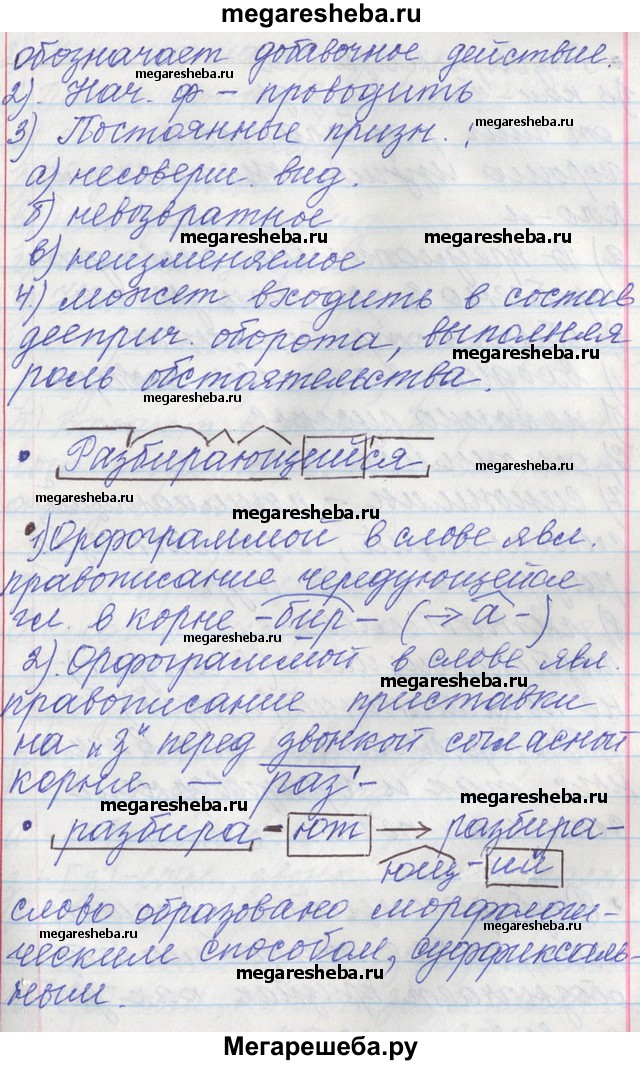 megaresheba.ru
обозначает добавочное действие.
megaresheba.ru
2). Нач. ф – проводить
megaresheba.ru
3) Постоянные призн. :
megaresheba.ru
а) несоверш. вид.
б) невозвратное
megaresheba.ru megaresheba.ru
в) неизменяемое
4) может входить в состав
дееприч. оборота, выполняя
megaresheba.ru
роль обстоятельства.
megaresheba.ru
• Разбирающийся
megaresheba.ru
megaresheba.ru
megaresheba.ru
• 1) Орфограммой в слове явл.
megaresheba.ru
правописание чередующейся
гл. в корне -бир- (→ а -)
megaresheba.ru
2). Орфограммой в слове явл.
megaresheba.ru
правописание приставки
на „з" перед звонкой согласной
megaresheba.ru
корня – раз-
megaresheba.ru megaresheba.ru
• разбира - ют → разбира-
ющ - ий
megaresheba.ru
слово образовано морфологи-
megaresheba.ru megaresheba.ru
ческим способом, суффиксаль-
megaresheba.ru
ным.
Мегарешеба.ру